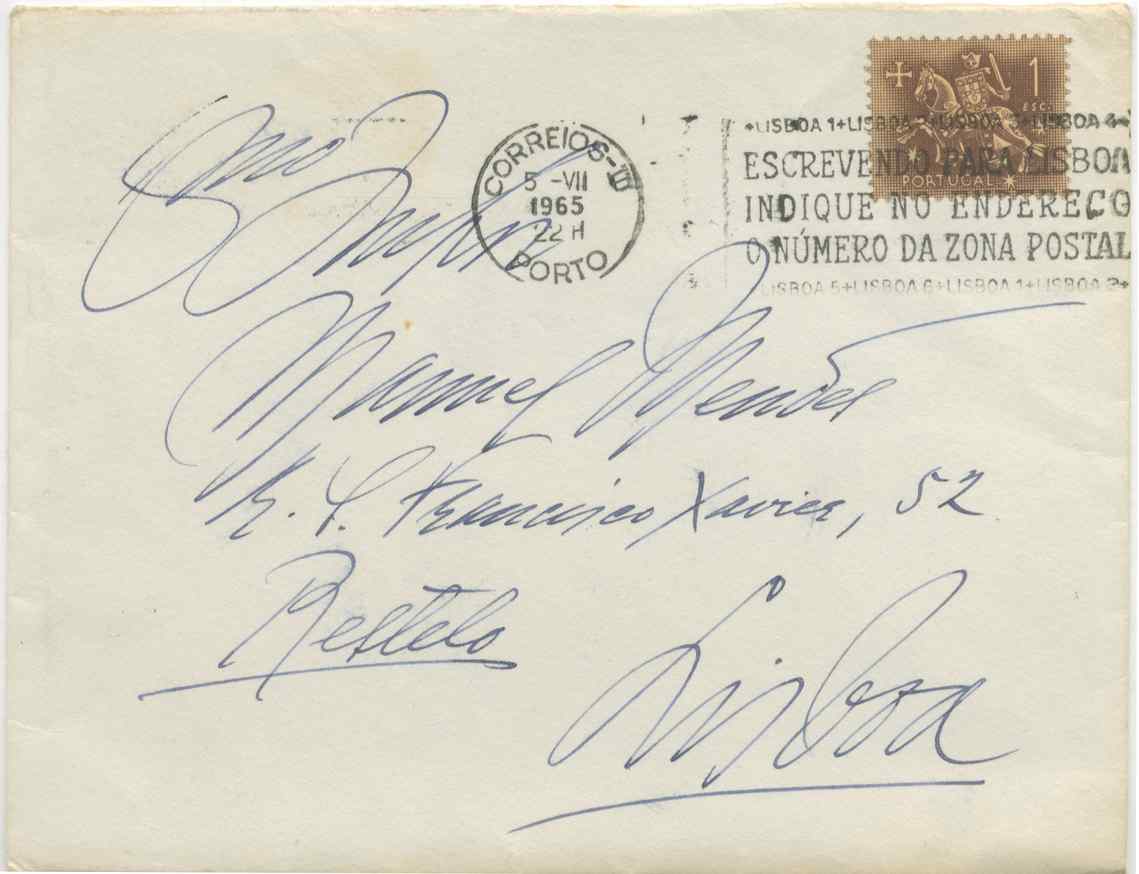 1
ESC.
PORTUGAL
+LISBOA 1+LISBOA 2+LISBOA 3+LISBOA 4+
ESCREVENDO PARA LISBOA
INDIQUE NO ENDEREÇO
O NÚMERO DA ZONA POSTAL
LISBOA 5+LISBOA 6+LISBOA 1+LISBOA 2+
CORREIOS-III
5 -VII
1965
22 H
PORTO
Exmo
Senhor
Manuel Mendes
R. S. Francisco Xavier, 52
Restelo
Lisboa